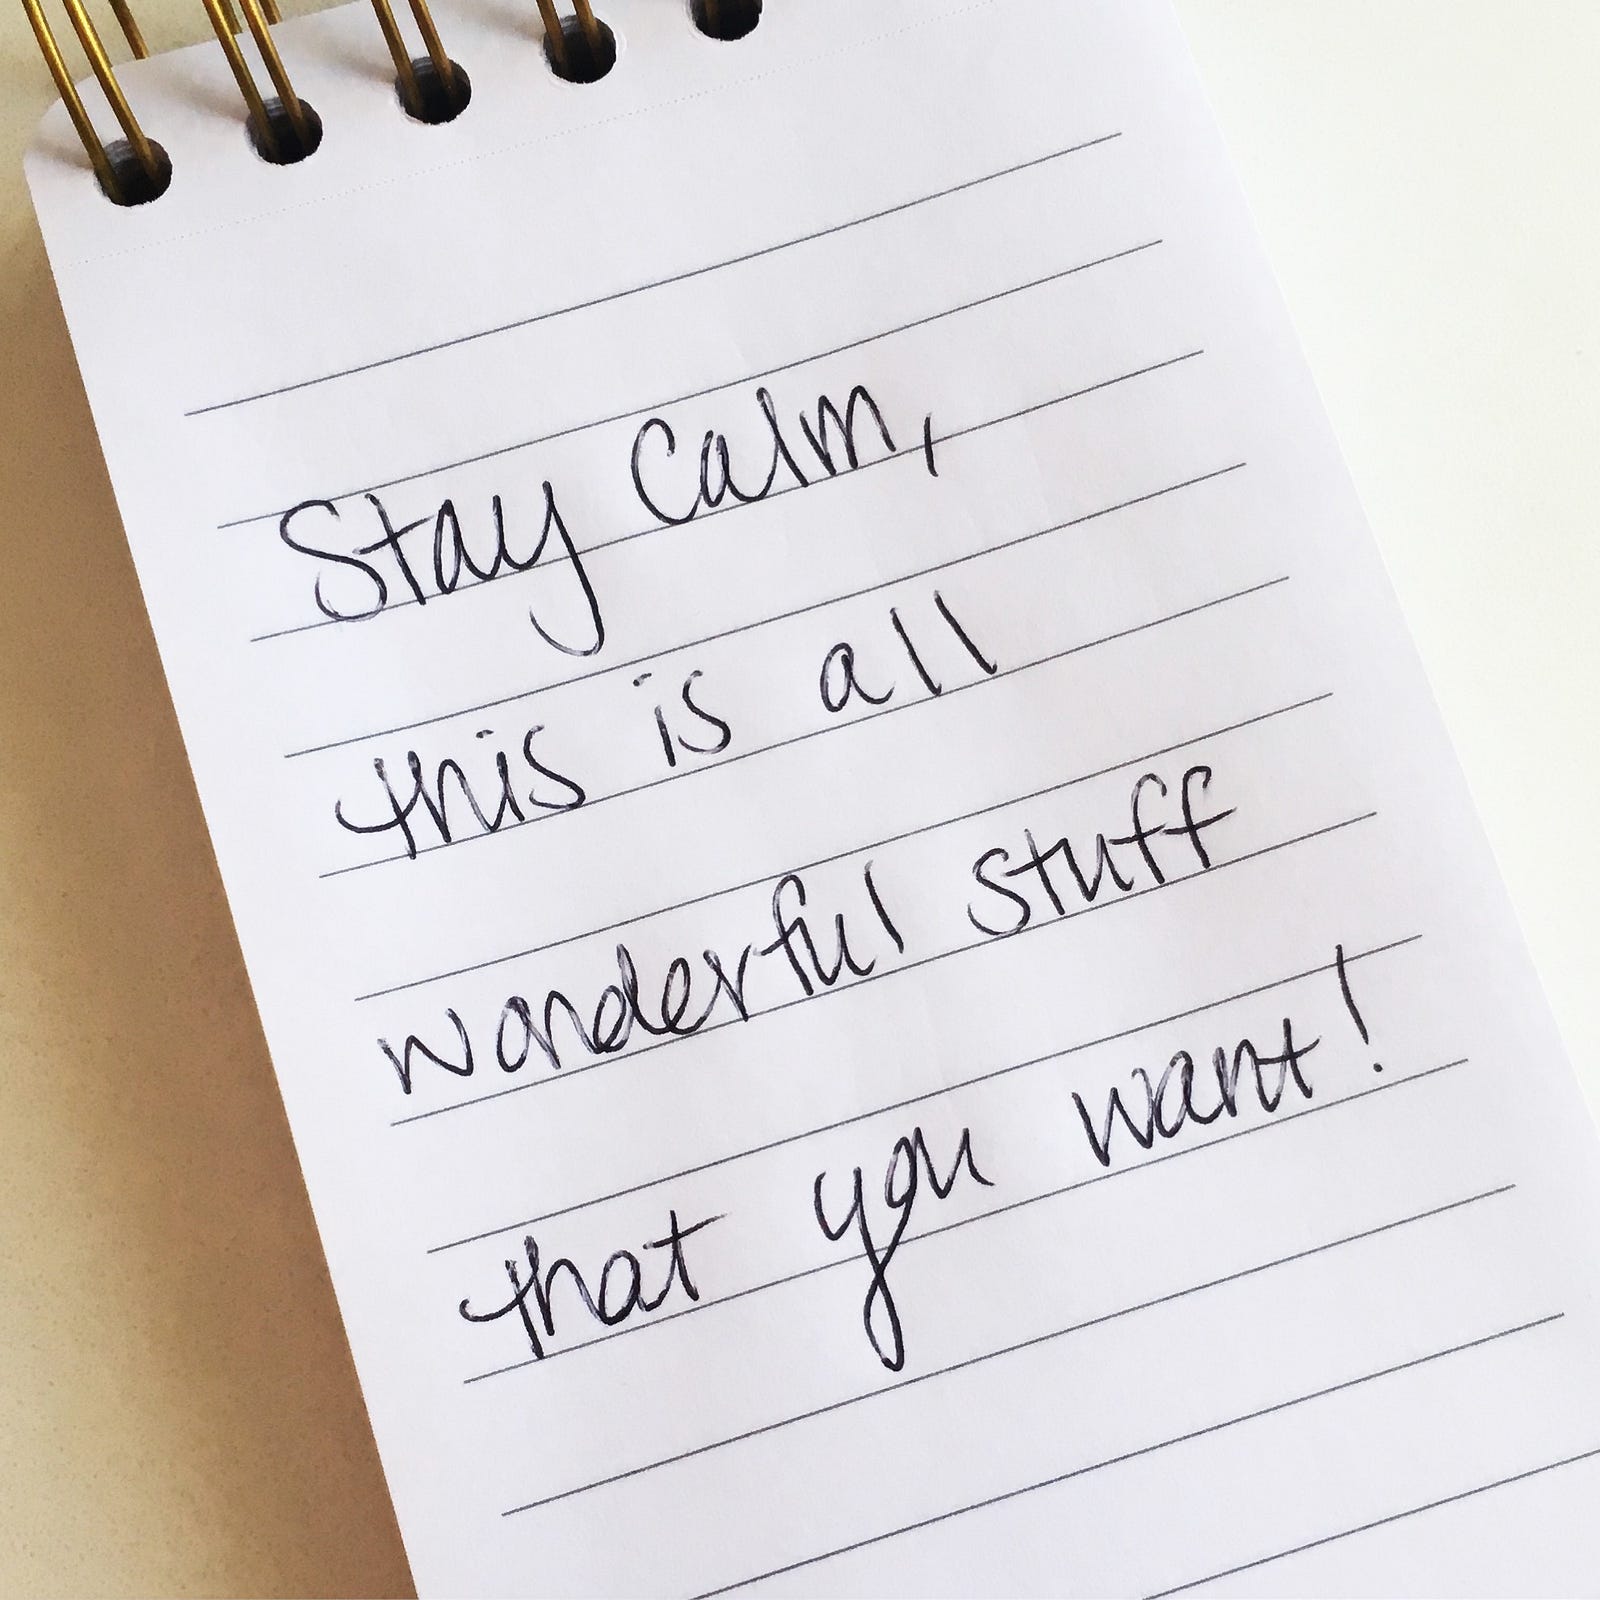 Stay Calm,
this is all
wonderful stuff
that you want!